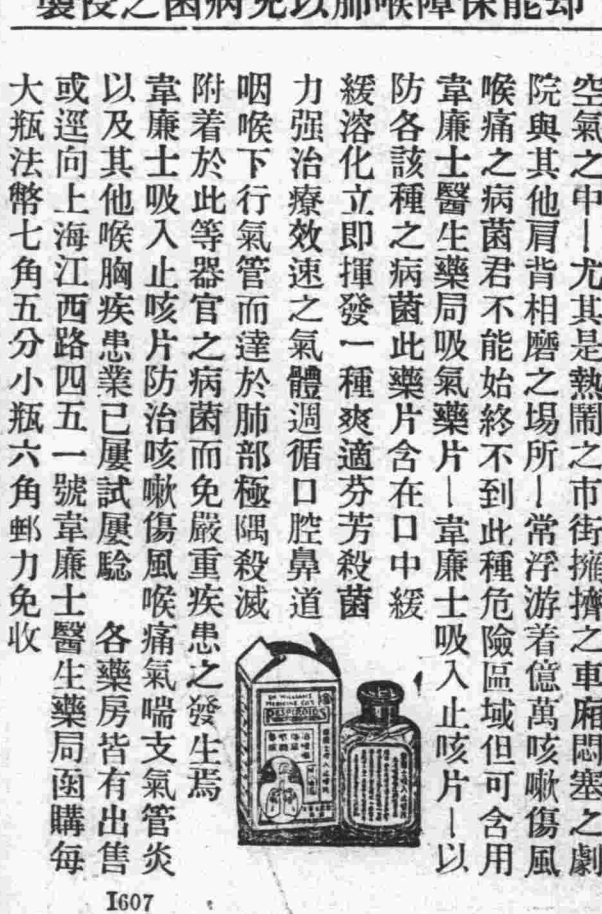 却能保障喉肺以免病菌之侵襲
空氣之中—尤其是熱鬧之市街擁擠之車廂悶塞之劇
院與其他肩背相磨之場所—常浮游着億萬咳嗽傷風
喉痛之病菌君不能始終不到此種危險區域但可含用
韋廉士醫生藥局吸氣藥片—韋廉士吸入止咳片—以
防各該種之病菌此藥片含在口中緩
緩溶化立即揮發一種爽適芬芳殺菌
力强治療效速之氣體週循口腔鼻道
咽喉下行氣管而達於肺部極隅殺滅
附着於此等器官之病菌而免嚴重疾患之發生焉
韋廉士吸入止咳片防治咳嗽傷風喉痛氣喘支氣管炎
以及其他喉胸疾患業已屢試屢騐　各藥房皆有出售
或逕向上海江西路四五一號韋廉士醫生藥局函購每
大瓶法幣七角五分小瓶六角郵力免收
DR WILLIAMS
MEDICINE CO'S
RESPIROIDS
1607